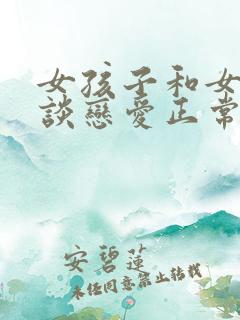 女孩子和女
談戀愛正常
安碧蓮
未经同意禁止转载